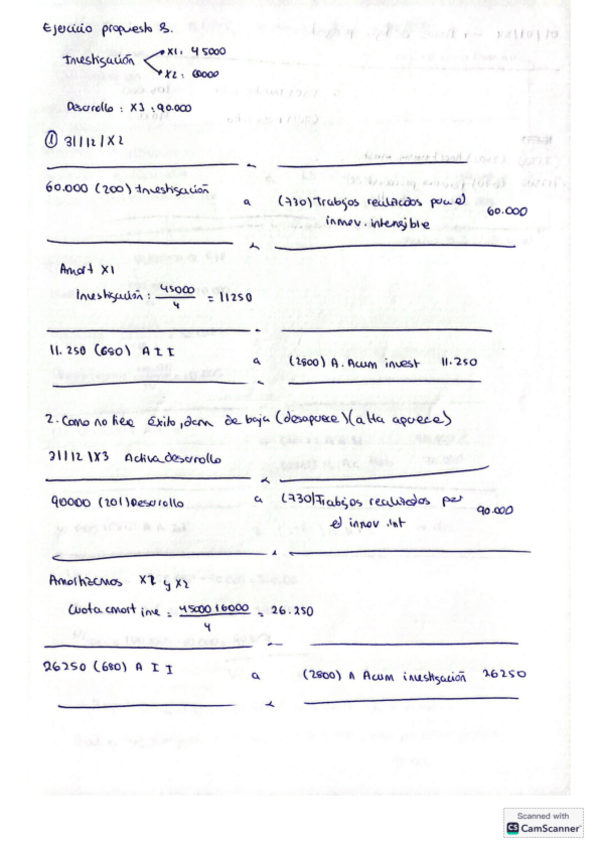 Ejercicio propuesto 3.
Investigación
X1: 45000
X2: 60000
Desarrollo: X3: 90.000
① 31/12/X2
60.000 (200) Investigación
a (730) Trabajos realizados para el
inmov. intangible 60.000
Amort X1
Investigación: 45000/4 = 11250
11.250 (680) A I I
a (2800) A. Acum invest 11.250
2. Como no tiene éxito, dam de baja (desaparece) (alta aparece)
31/12/X3 Activa desarrollo
90000 (201) Desarrollo a (730) Trabajos realizados por
el inmov. int 90.000
Amortizamos X1 y X2
Cuota amort inve = 45000+6000/4 = 26.250
26250 (680) A I I
a (2800) A Acum investigación 26250
Scanned with
CS CamScanner